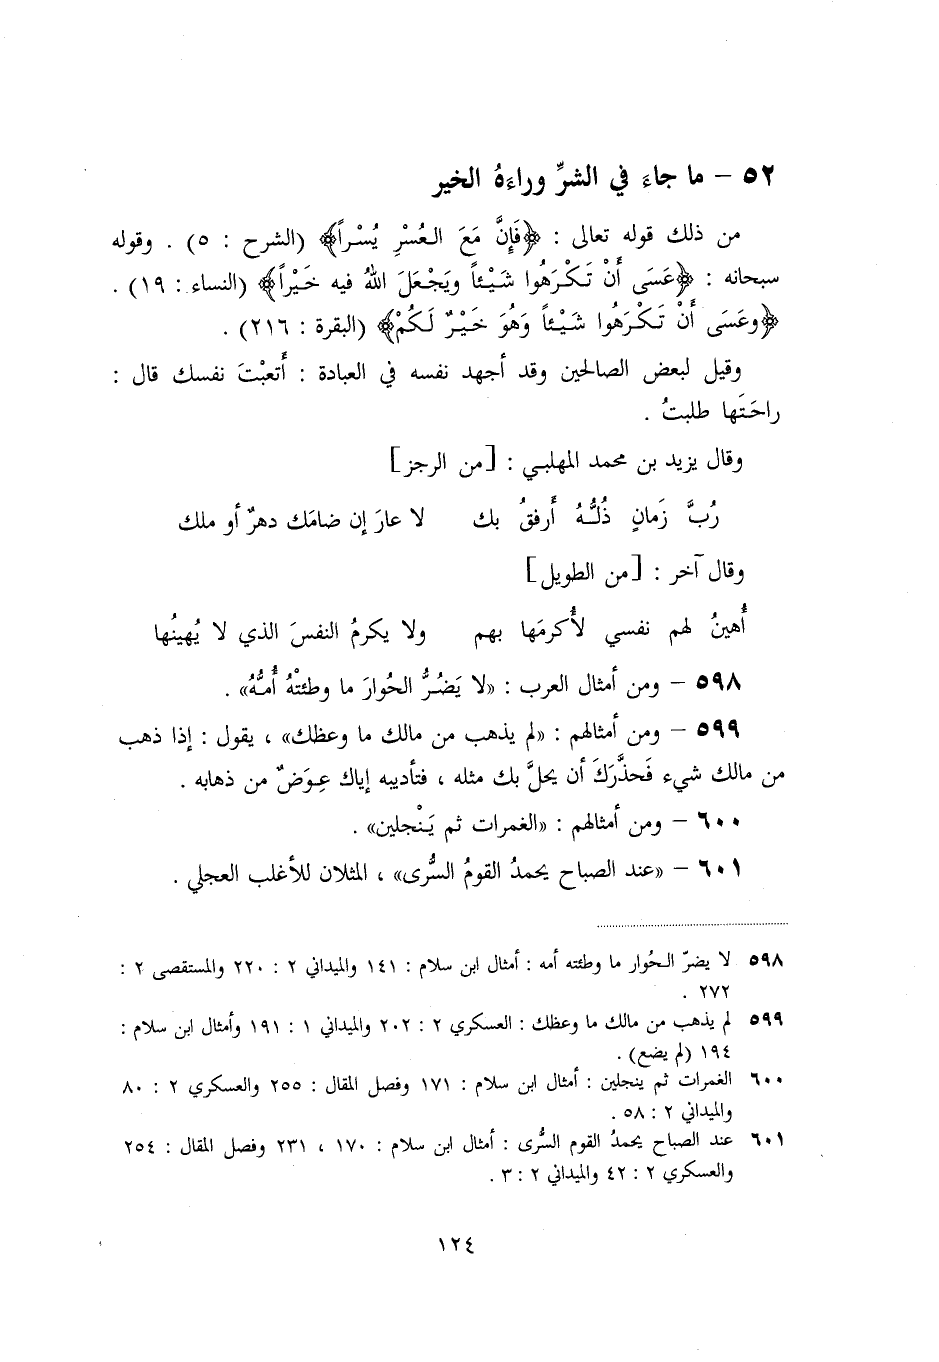 ٥٢ - ما جاءَ في الشرِّ وراءَهُ الخير
من ذلك قوله تعالى : ﴿فَإِنَّ مَعَ العُسْرِ يُسْراً﴾ (الشرح : ٥) . وقوله
سبحانه : ﴿عَسَى أَنْ تَكْرَهُوا شَيْئاً ويَجْعَلَ اللهُ فيه خَيْراً﴾ (النساء : ١٩) .
﴿وعَسَى أَنْ تَكْرَهُوا شَيْئاً وَهُوَ خَيْرٌ لَكُمْ﴾ (البقرة : ٢١٦) .
وقيل لبعض الصالحين وقد أجهد نفسه في العبادة : أَتعبْتَ نفسك قال :
راحَتَها طلبتُ .
وقال يزيد بن محمد المهلبي : [من الرجز]
رُبَّ زَمانٍ ذُلُّهُ أَرفقُ بك لا عارَ إن ضامَك دهرٌ أو ملك
وقال آخر : [من الطويل]
أُهينُ لهم نفسي لأُكرمَها بهم ولا يكرمُ النفسَ الذي لا يُهينُها
٥٩٨ - ومن أمثال العرب : «لا يَضُرُّ الحُوارَ ما وطئتْهُ أُمُّهُ» .
٥٩٩ - ومن أمثالهم : «لم يذهب من مالك ما وعظك» ، يقول : إذا ذهب
من مالك شيء فَحذَّرَكَ أن يحلَّ بك مثله ، فتأديبه إياك عِوَضٌ من ذهابه .
٦٠٠ - ومن أمثالهم : «الغمرات ثم يَنْجلين» .
٦٠١ - «عند الصباح يحمدُ القومُ السُّرى» ، المثلان للأغلب العجلي .
٥٩٨ لا يضرّ الحُوار ما وطئته أمه : أمثال ابن سلام : ١٤١ والميداني ٢ : ٢٢٠ والمستقصى ٢ :
٢٧٢ .
٥٩٩ لم يذهب من مالك ما وعظك : العسكري ٢ : ٢٠٢ والميداني ١ : ١٩١ وأمثال ابن سلام :
١٩٤ (لم يضع) .
٦٠٠ الغمرات ثم ينجلين : أمثال ابن سلام : ١٧١ وفصل المقال : ٢٥٥ والعسكري ٢ : ٨٠
والميداني ٢ : ٥٨ .
٦٠١ عند الصباح يحمدُ القوم السُّرى : أمثال ابن سلام : ١٧٠ ، ٢٣١ وفصل المقال : ٢٥٤
والعسكري ٢ : ٤٢ والميداني ٢ : ٣ .
١٢٤